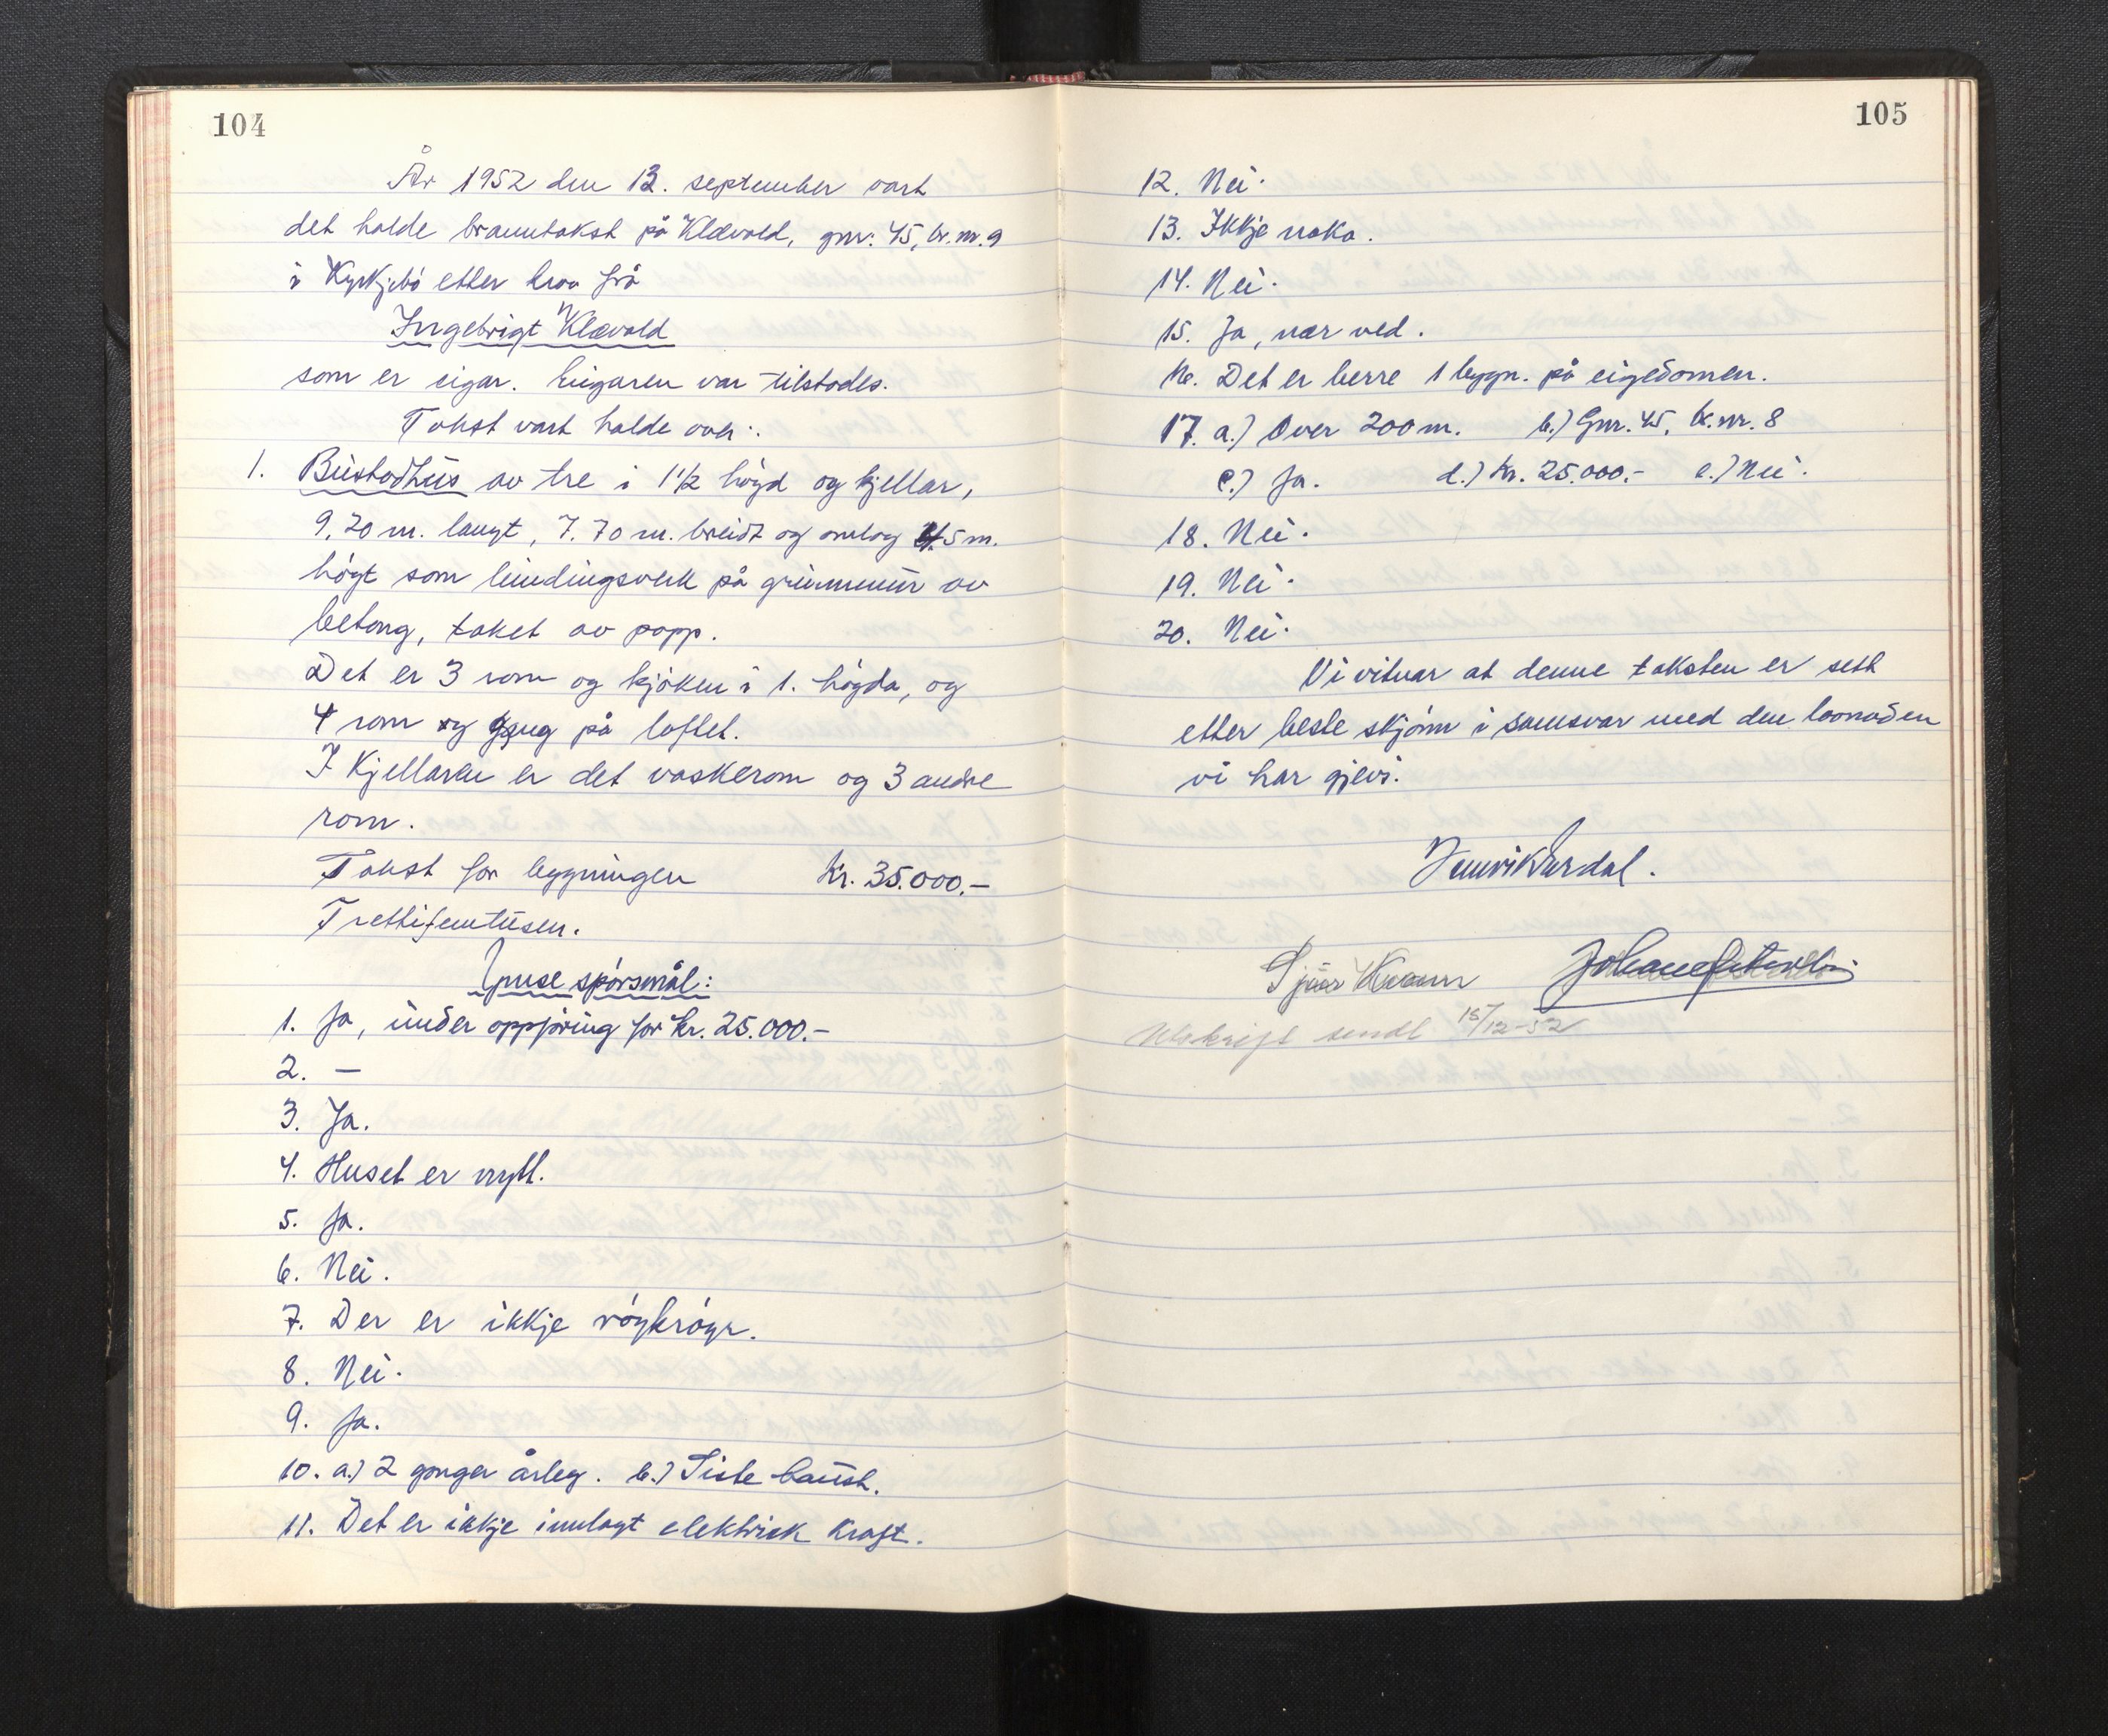 104
År 1952 den 13. september vart
det halde branntakst på Klævold, gnr. 45, br. nr. 9
i Kyrkjebö etter krav frå
Ingebrigt Klævold
som er eigar. Eigaren var tilstades.
Takst vart halde over:
1. Bustadhus av tre i 1 1/2 högd og kjellar,
9,20 m. langt, 7.70 m. breidt og omlag 5 m.
högt som bindingsverk på grunnmur av
betong, taket av papp.
Det er 3 rom og kjöken i 1. högda, og
4 rom og gang på loftet.
I Kjellaren er det vaskerom og 3 andre
rom.
Takst for bygningen Kr. 35.000.-
Trettifemtusen.
Ymse spörsmål:
1. Ja, under oppföring for kr. 25.000.-
2. —
3. Ja.
4. Huset er nytt.
5. Ja.
6. Nei.
7. Der er ikkje röykröyr.
8. Nei.
9. Ja.
10. a.) 2 gonger årleg. b.) Siste haust.
11. Det er ikkje innlagt elektrisk kraft.
105
12. Nei.
13. Ikkje noko.
14. Nei.
15. Ja, nær ved.
16. Det er berre 1 bygn. på eigedomen.
17. a.) Over 200 m. b.) Gnr. 45, br. nr. 8
c.) Ja. d.) kr. 25.000.- e.) Nei.
18. Nei.
19. Nei.
20. Nei.
Vi vitnar at denne taksten er sett
etter beste skjönn i samsvar med den lovnaden
vi har gjevi.
Utskrift sendt 15/12-52